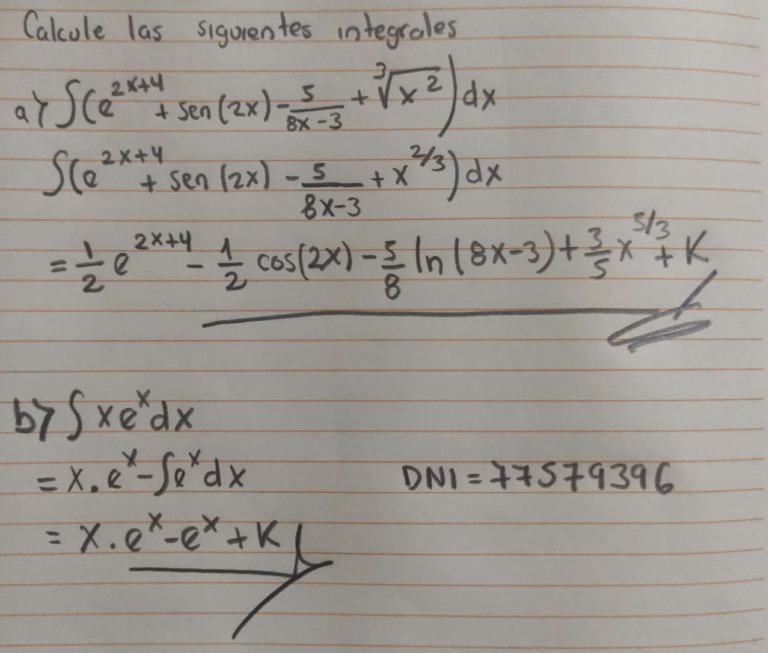 Calcule las siguientes integrales
a) ∫(e^{2x+4} + sen(2x) - \frac{5}{8x-3} + \sqrt[3]{x^2}) dx
∫(e^{2x+4} + sen(2x) - \frac{5}{8x-3} + x^{2/3}) dx
= \frac{1}{2} e^{2x+4} - \frac{1}{2} cos(2x) - \frac{5}{8} ln(8x-3) + \frac{3}{5} x^{5/3} + K
b) ∫ x e^x dx
= x . e^x - ∫ e^x dx
DNI = 77579396
= x . e^x - e^x + K